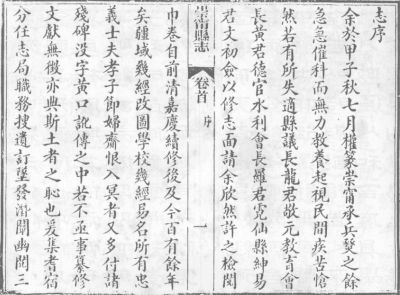 志序
余於甲子秋七月權篆崇甯承兵燹之餘
急急催科而無力教養起視民間疾苦愴
然若有所失適縣議長龍君敬元教育會
長黃君德官水利會長羅君霓仙縣紳易
君文初僉以修志面請余欣然許之檢閱
崇甯縣志
卷首
序
一
巾卷自前清嘉慶續修後及今百有餘年
矣疆域幾經改圖學校幾經易名所有忠
義士夫孝子節婦齎恨入冥者又多付諸
殘碑没字黄口訛傳之中若不亟事纂修
文獻無徵亦典斯土者之恥也爰集耆宿
分任志局職務搜遺訂墜發潛闡幽閱三